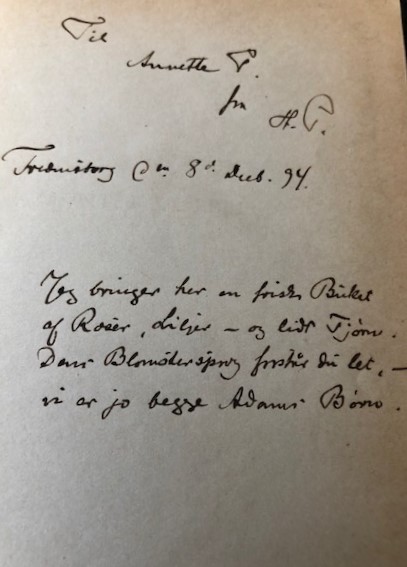 Til
Annette P.
fra
H. P.
8d. Decb. 94.
Jeg bringer her en frisk Buket
af Roser, Liljer – og lidt Tjørn.
Dens Blomstersprog forstår du let, –
vi er jo begge Adams Børn.